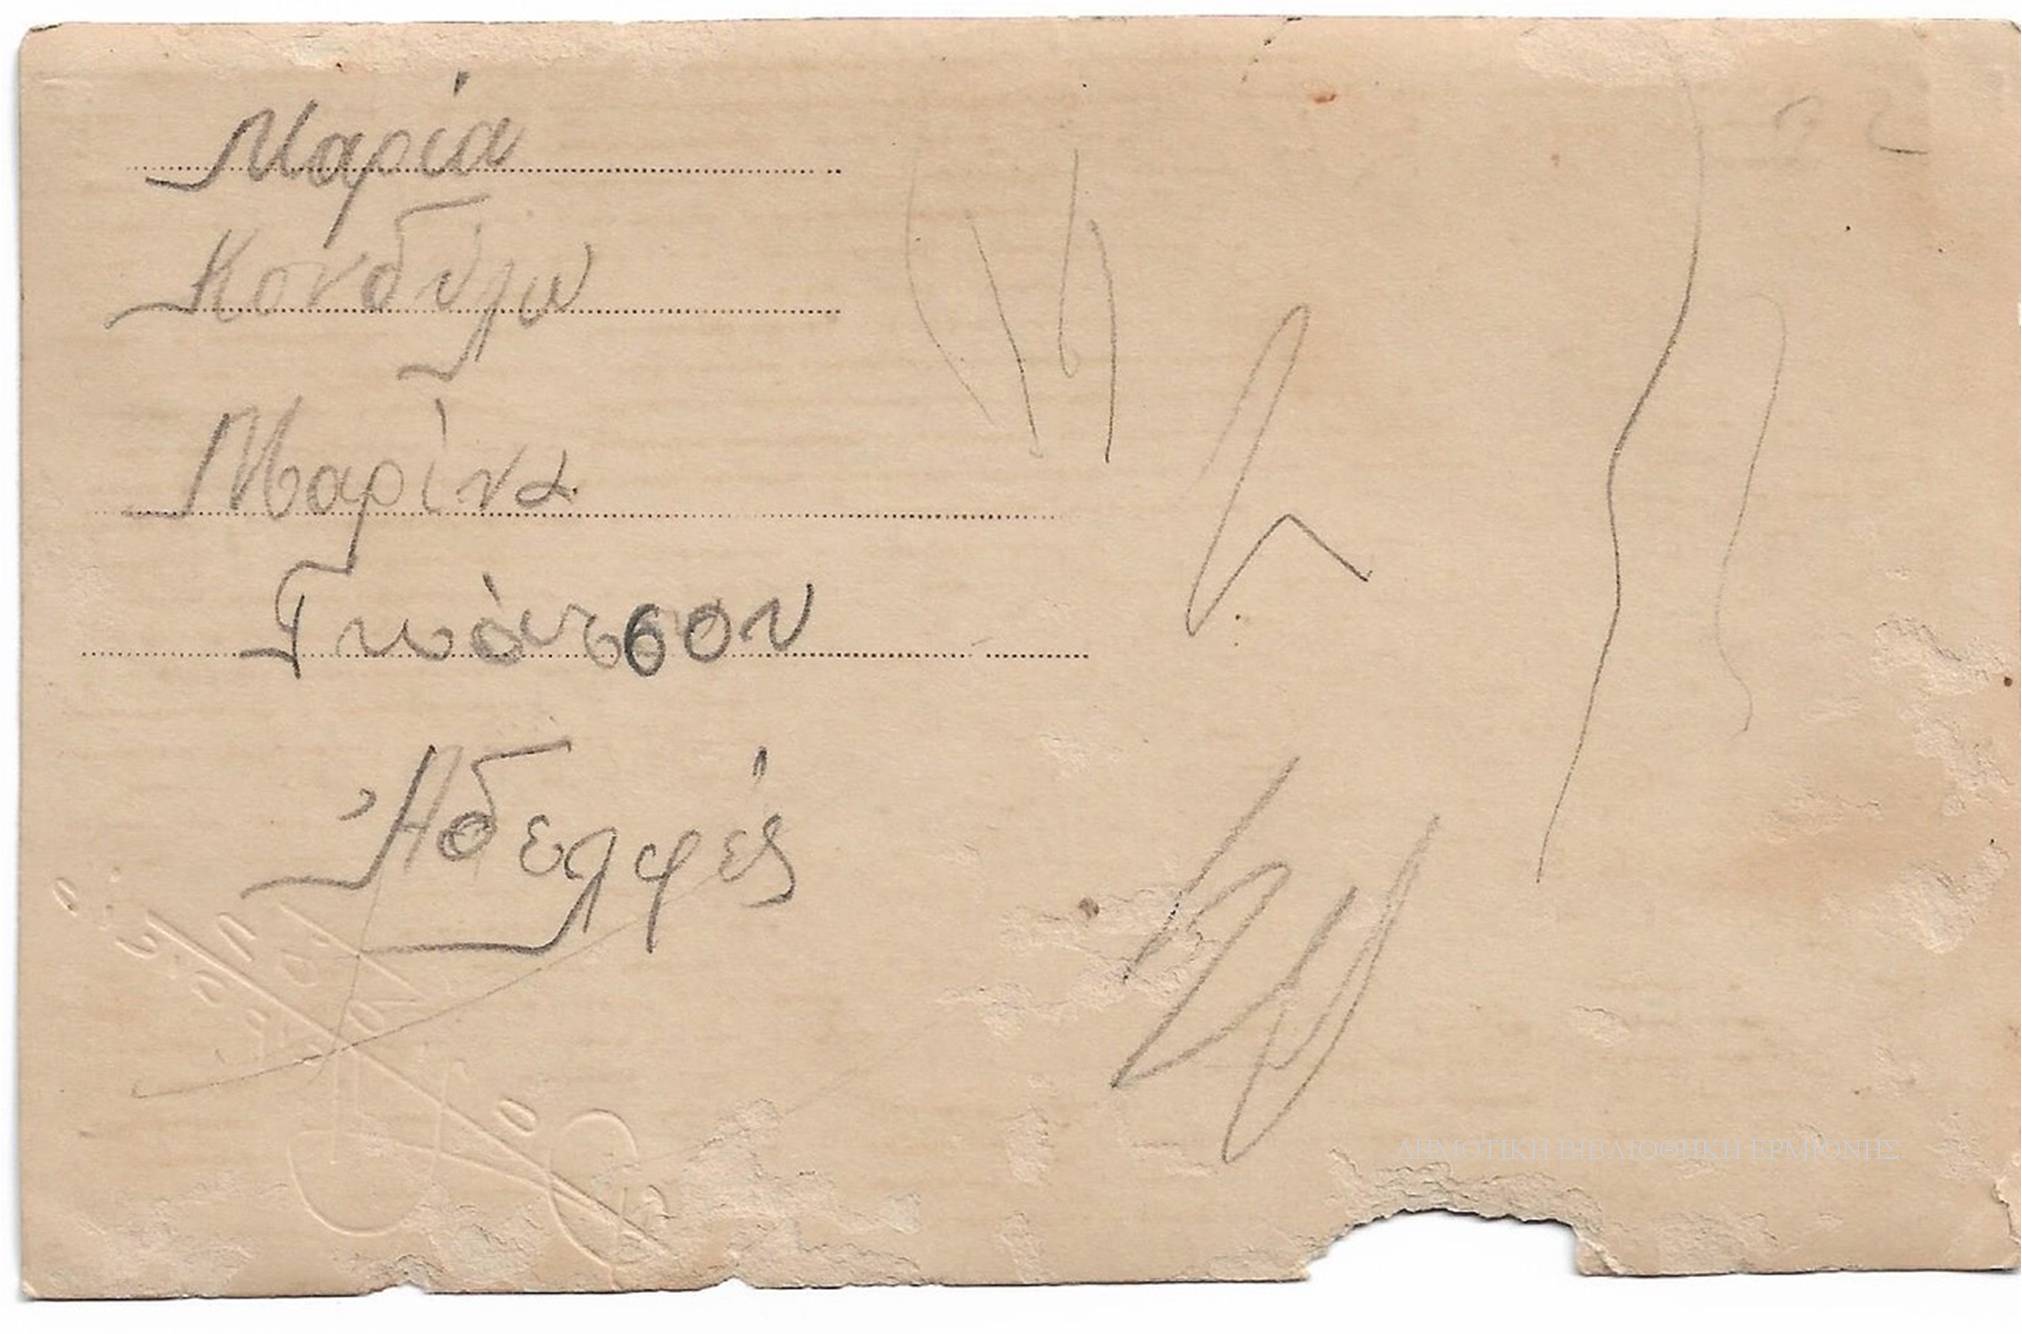 Μαρία
Κονδύλω
Μαρίνα
Γκάτσου
Ἀδελφές
ΔΗΜΟΤΙΚΗ ΒΙΒΛΙΟΘΗΚΗ ΕΡΜΙΟΝΗΣ